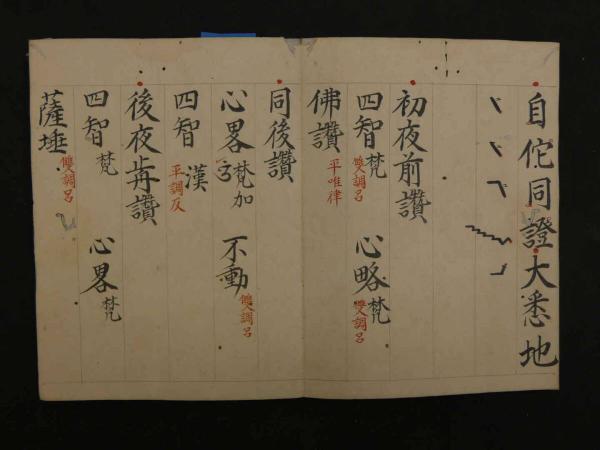 自佗同證大悉地
初夜前讚
四智梵 雙調呂 心略梵 雙調呂
佛讚 平唯律
同後讚
心畧梵加 不動 雙調呂
四智漢 平調反
後夜前讚
四智梵 心畧梵
薩埵 雙調呂